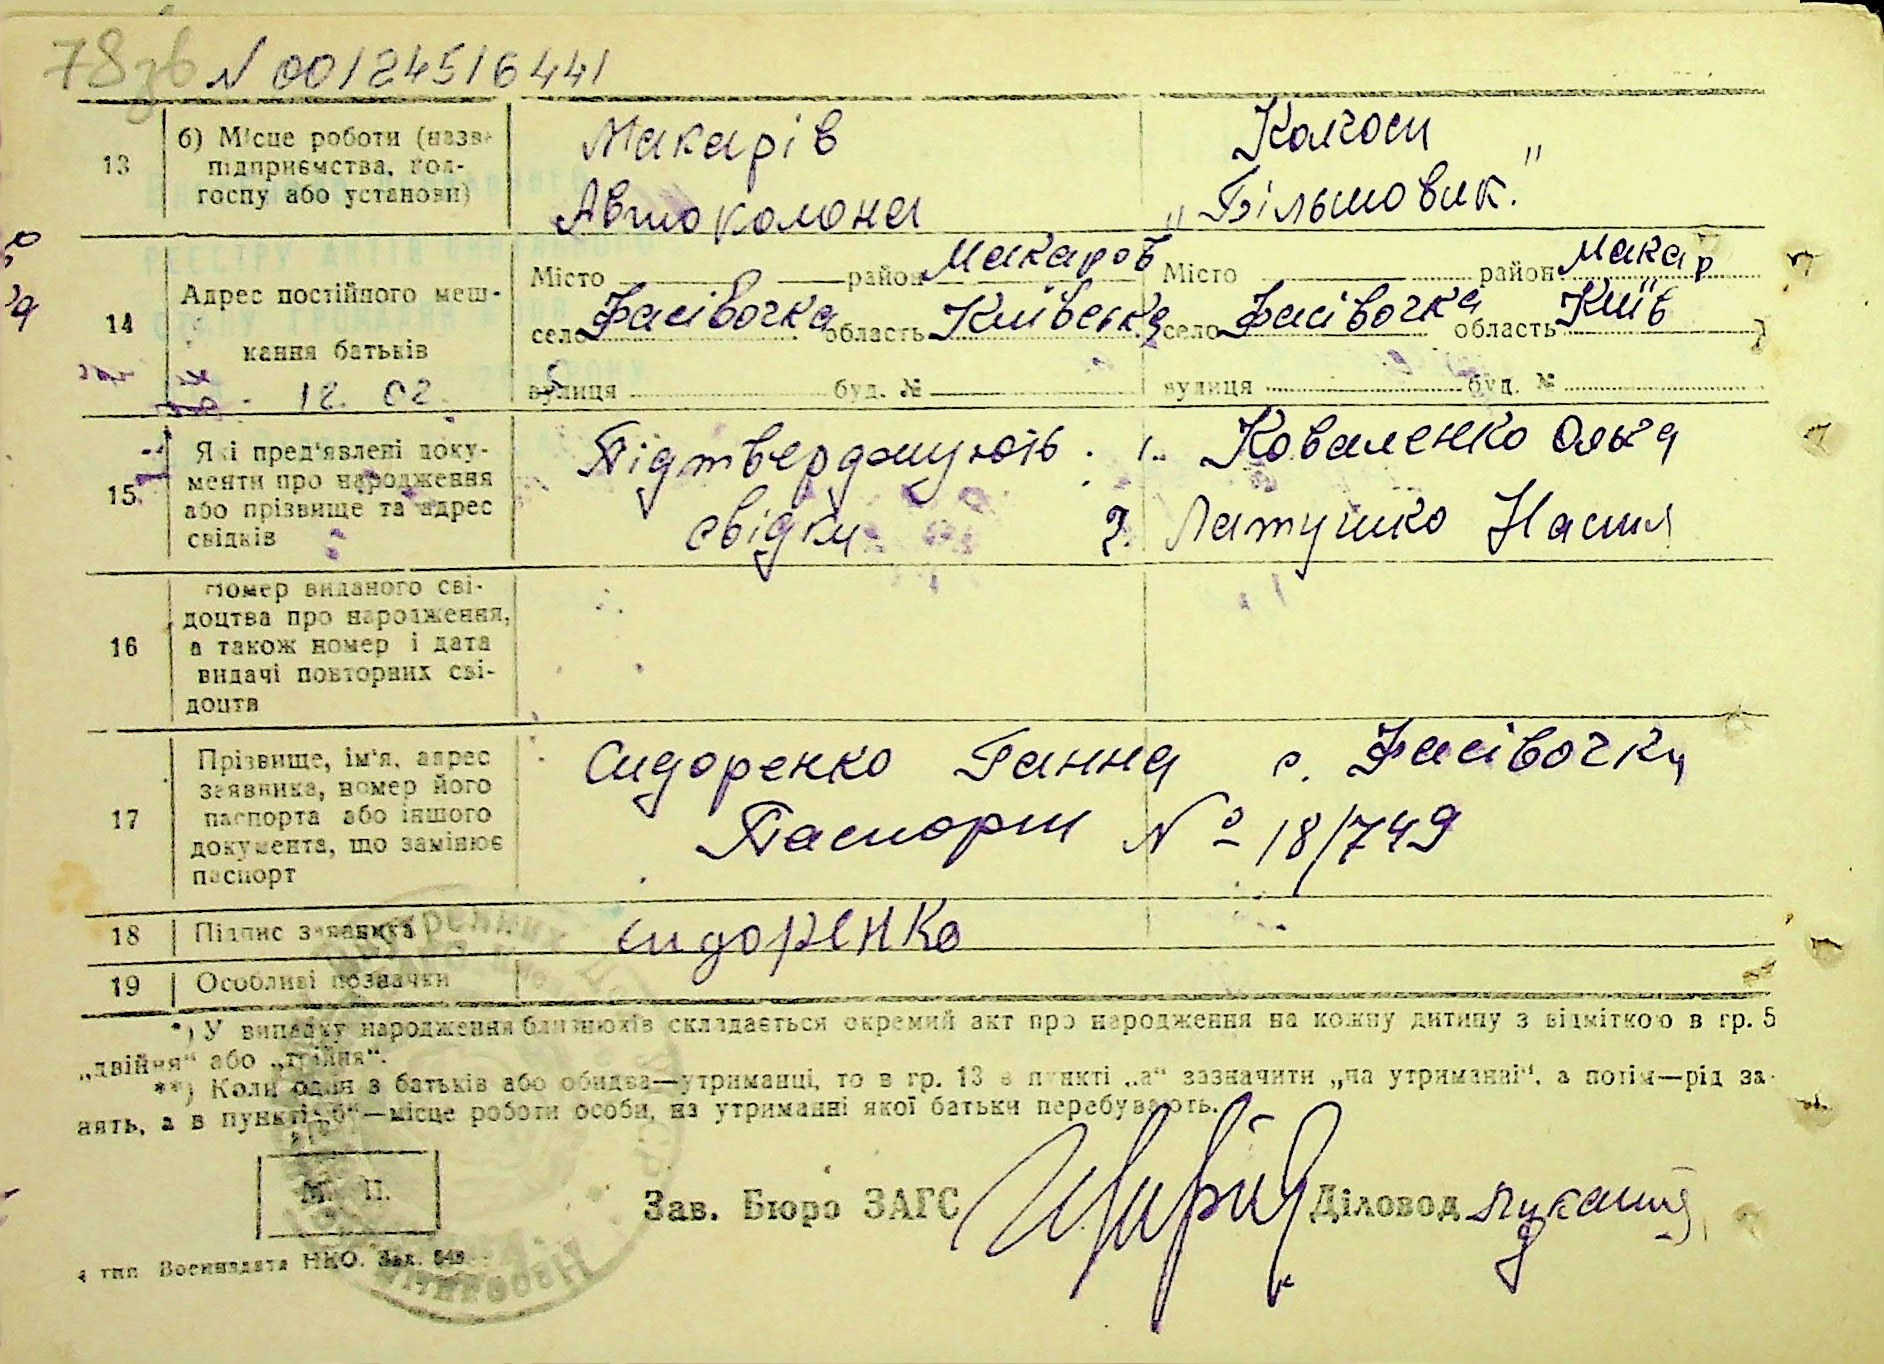 78зв N 00124516441
13
б) Місце роботи (назва підприємства, колгоспу або установи)
Макарів
Автоколона
Колгосп
„Більшовик."
14
Адрес постійного мешкання батьків
12. 02.
Місто район Макаров
село Фасівочка область Київська
вулиця буд. №
Місто район Макар
село Фасівочка область Київ
вулиця буд. №
15
Які пред'явлені документи про народження або прізвище та адрес свідків
Підтверджують
свідки
1. Коваленко Ольга
2. Латушко Настя
16
Номер виданого свідоцтва про народження, а також номер і дата видачі повторних свідоцтв
17
Прізвище, ім'я, адрес заявника, номер його паспорта або іншого документа, що замінює паспорт
Сидоренко Ганна с. Фасівочка
Паспорт № 18/749
18
Підпис заявника
сидоренко
19
Особливі позначки
*) У випадку народження близнюків складається окремий акт про народження на кожну дитину з відміткою в гр. 5
„двійня" або „трійня".
**) Коли один з батьків або обидва—утриманці, то в гр. 13 в пункті „а" зазначити „на утриманні", а потім—рід за-
нять, а в пункті „б"—місце роботи особи, на утриманні якої батьки перебувають.
М. П.
Зав. Бюро ЗАГС
Діловод
4 тип Воениздата НКО. Зак. 648